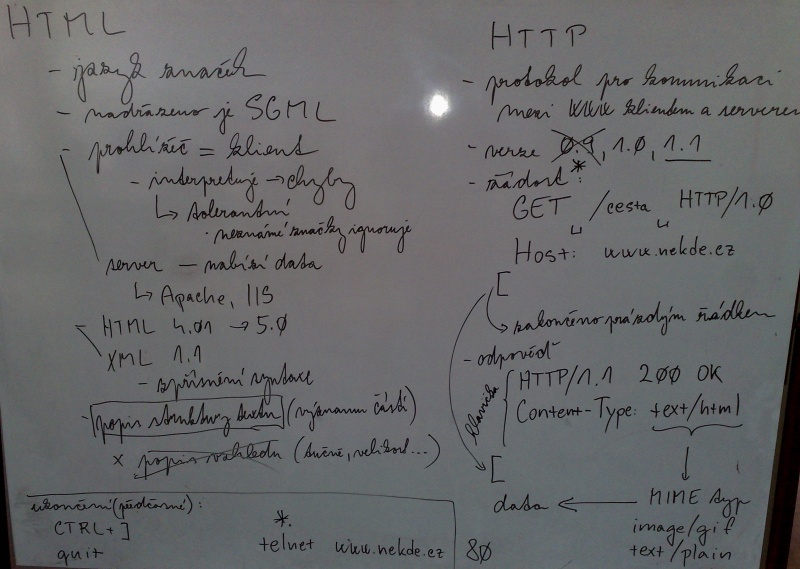 HTML
- jazyk značek
- nadřazeno je SGML
- prohlížeč = klient
- interpretuje → chyby
↳ tolerantní
· neznámé značky ignoruje
server — nabízí data
↳ Apache, IIS
- HTML 4.01 → 5.0
XML 1.1
- zpřísnění syntaxe
- popis struktury textu (významu částí)
x popis vzhledu (tučné, velikost...)
ukončení (předčasné):
CTRL + ]
quit
*.
telnet www.nekde.cz 80
HTTP
- protokol pro komunikaci
mezi WWW klientem a serverem
- verze 0.9, 1.0, 1.1
- žádost*:
GET ␣ /cesta ␣ HTTP/1.0
Host: www.nekde.cz
[
zakončeno prázdným řádkem
- odpověď
hlavička
HTTP/1.1 200 OK
Content-Type: text/html
[
data ← MIME typ
image/gif
text/plain